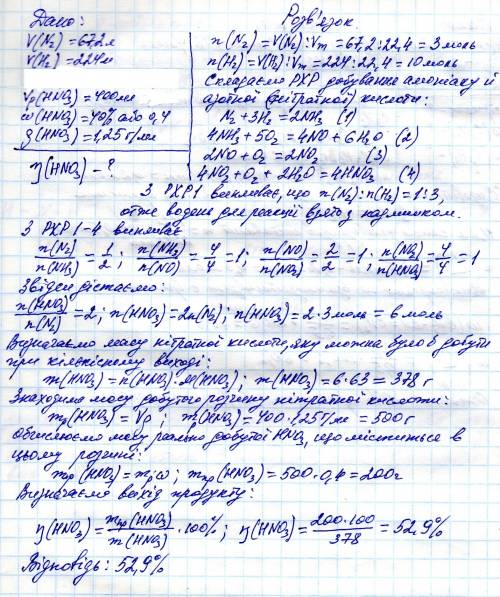 Дано:
V(N₂) = 67,2 л
V(H₂) = 224 л
Vр(HNO₃) = 400 мл
ω(HNO₃) = 40% або 0,4
ρ(HNO₃) = 1,25 г/мл
η(HNO₃) – ?
Розв'язок
n(N₂) = V(N₂) : Vm = 67,2 : 22,4 = 3 моль
n(H₂) = V(H₂) : Vm = 224 : 22,4 = 10 моль
Складаємо РХР добування амоніаку й
азотної (нітратної) кислоти:
N₂ + 3H₂ = 2NH₃ (1)
4NH₃ + 5O₂ = 4NO + 6H₂O (2)
2NO + O₂ = 2NO₂ (3)
4NO₂ + O₂ + 2H₂O = 4HNO₃ (4)
З РХР1 випливає, що n(N₂) : n(H₂) = 1:3,
отже водень для реакції взято з надлишком.
З РХР 1-4 випливає
n(N₂)/n(NH₃) = 1/2; n(NH₃)/n(NO) = 4/4 = 1; n(NO)/n(NO₂) = 2/2 = 1; n(NO₂)/n(HNO₃) = 4/4 = 1
Звідси дістаємо:
n(HNO₃)/n(N₂) = 2; n(HNO₃) = 2n(N₂); n(HNO₃) = 2·3 моль = 6 моль
Визначаємо масу нітратної кислоти, яку можна було б добути
при кількісному виході:
m(HNO₃) = n(HNO₃)·M(HNO₃); m(HNO₃) = 6·63 = 378 г
Знаходимо масу добутого розчину нітратної кислоти:
mр(HNO₃) = Vρ; m(HNO₃) = 400·1,25 г/мл = 500 г
Обчислюємо масу реально добутої HNO₃, що міститься в
цьому розчині:
mпр(HNO₃) = mрω; mпр(HNO₃) = 500·0,4 = 200 г
Визначаємо вихід продукту:
η(HNO₃) = mпр(HNO₃)/m(HNO₃)·100%; η(HNO₃) = 200·100/378 = 52,9%
Відповідь: 52,9%